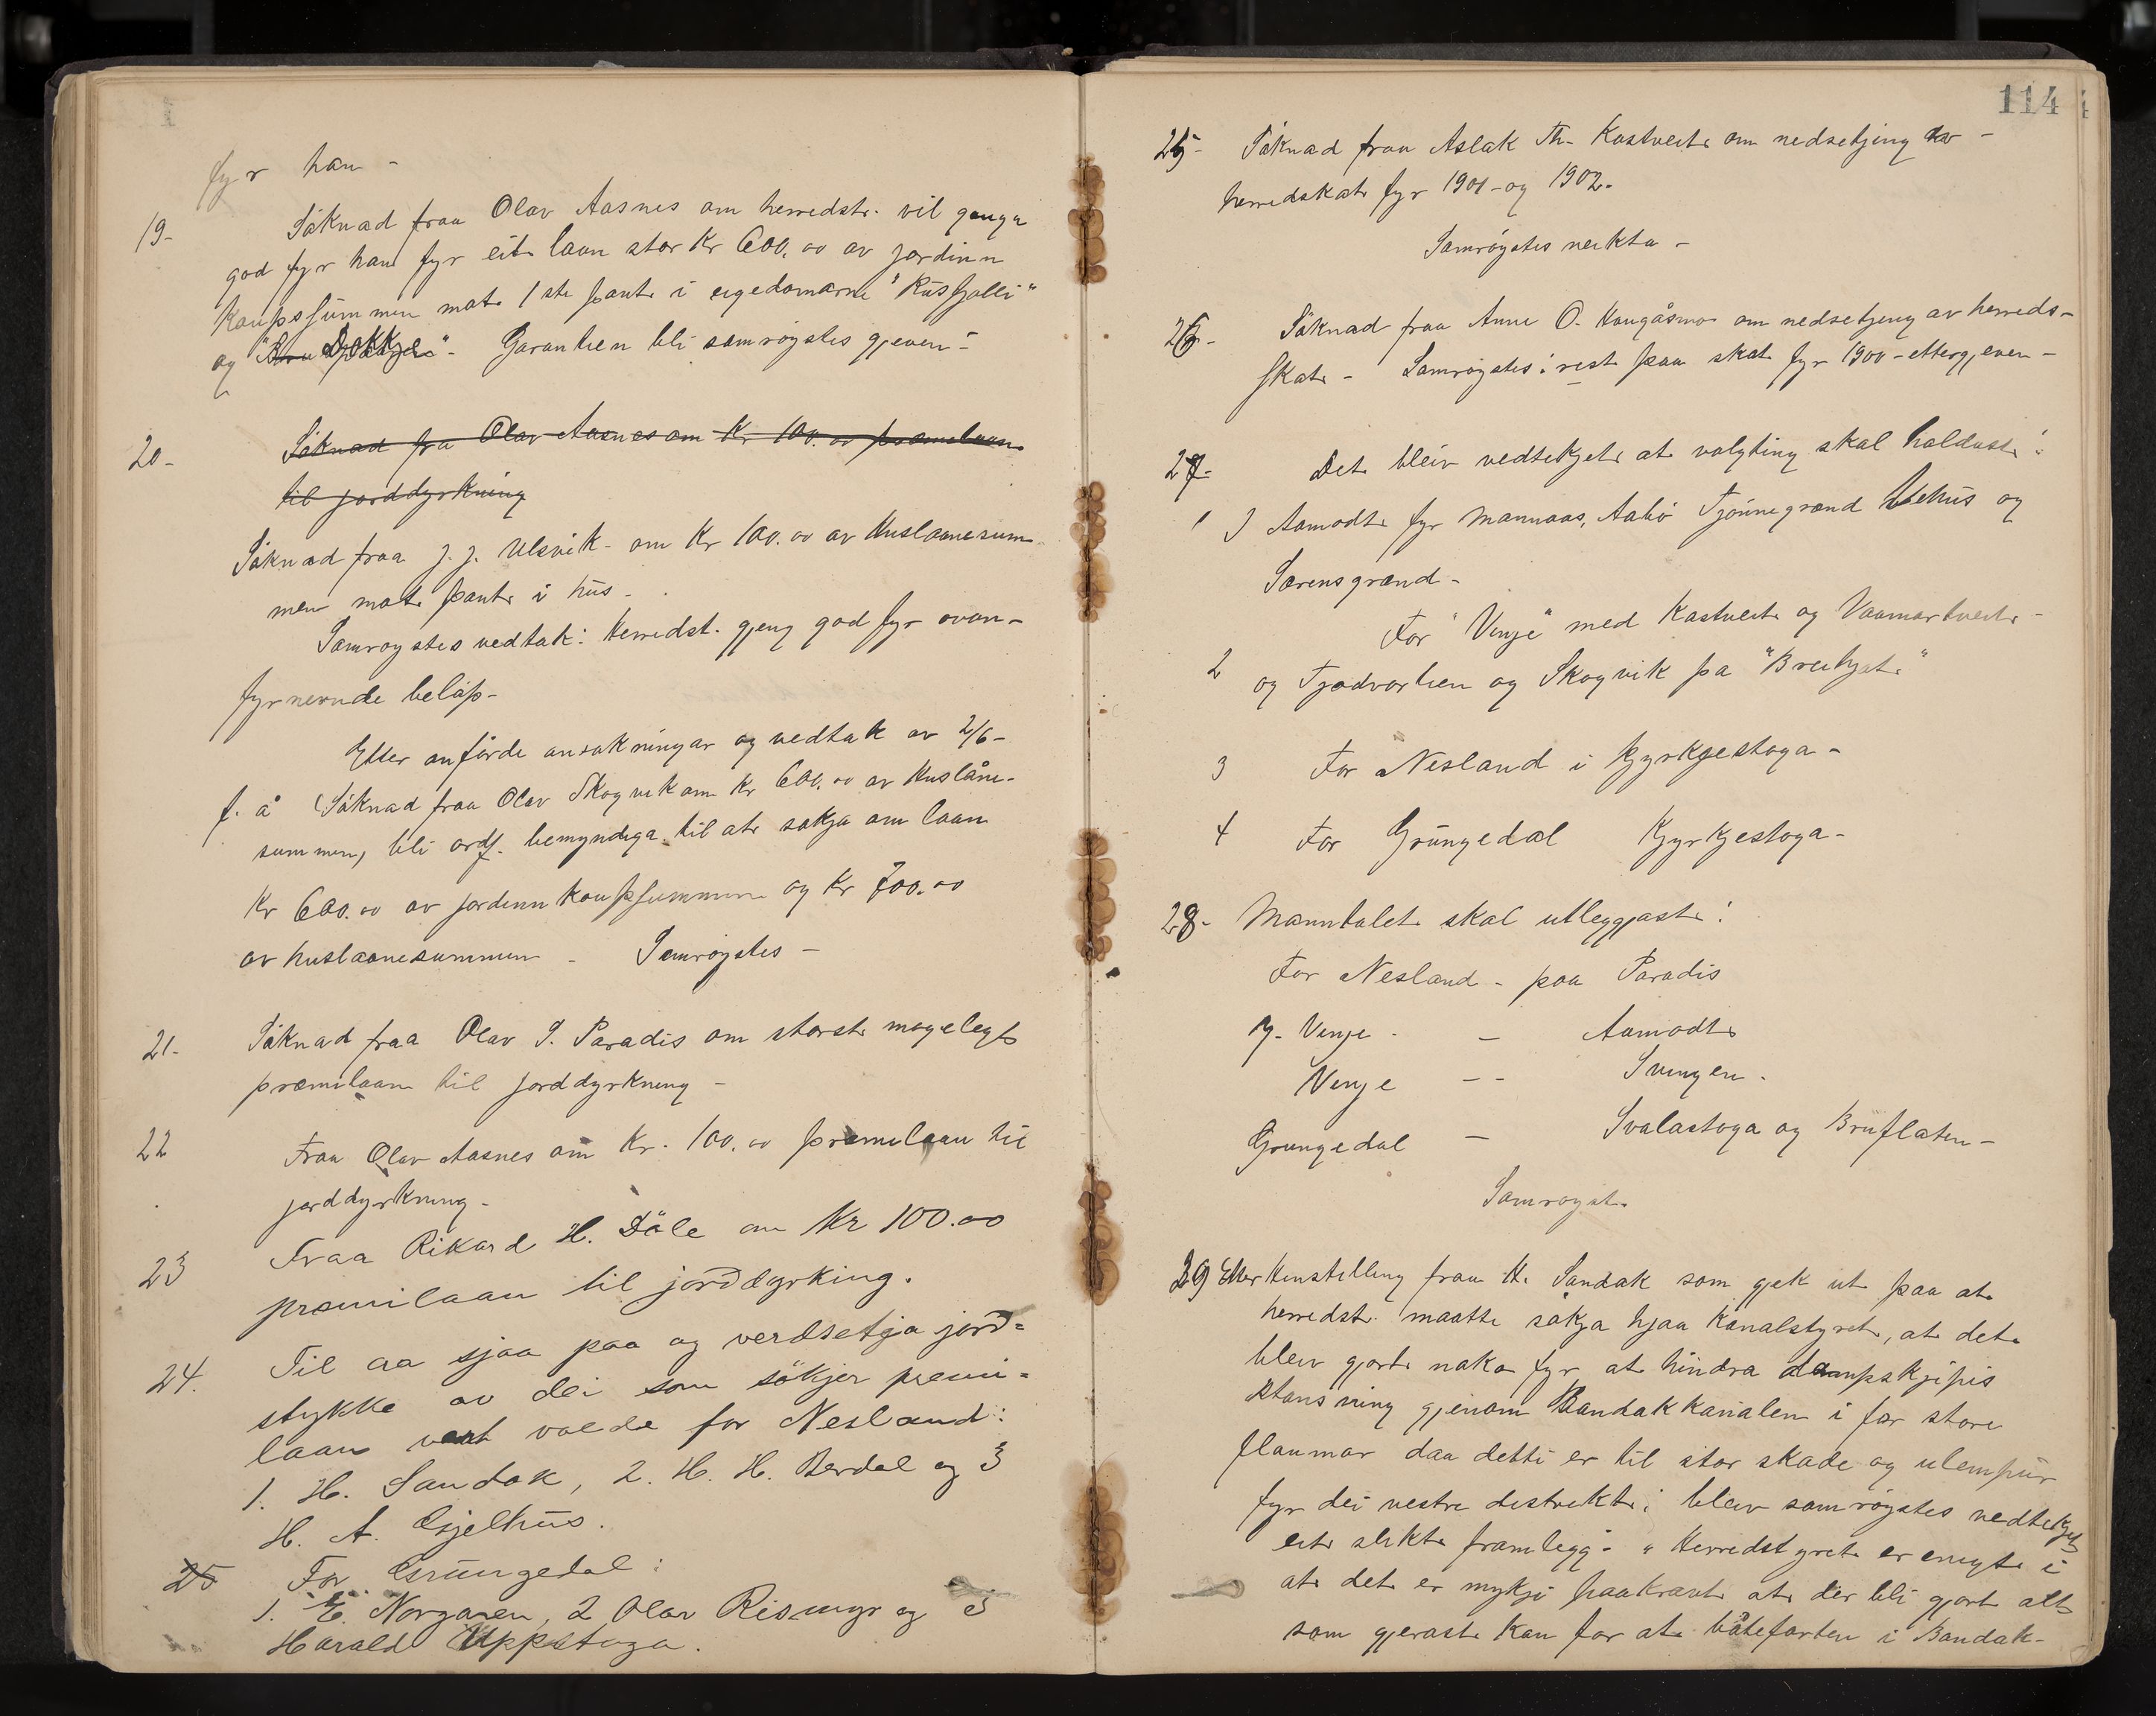 fyr han -
19- Söknad fraa Olav Aasnes om herredst. vil ganga
god fyr han fyr eit laan stor Kr 600.00 av jordinn
kaupssummen mot 1ste pant i eigedomarne "Rusfjolli"
og " Dokkje". Garantien bli samrøystes gjeven -
20- Söknad fra Olav Aasnes om Kr 100.00 præmilaan
til jorddyrkning
Söknad fraa J. J. Ulsvik - om Kr 100.00 av Huslaanesum
men mot pant i hus -
Samrøystes vedtak: Herredst. gjeng god fyr ovan-
fyrnevnde beløp -
Etter anførde ansøkningar og vedtak av 2/6 -
f. å (Söknad fraa Olav Skogvik om Kr 600.00 av Huslåne-
summen, bli ordf. bemyndiga til at søkja om laan
Kr 600.00 av jordinnkaupssummen og Kr 700.00
av huslaanesummen - Samrøystes -
21- Söknad fraa Olav S. Paradis om størst mogelegt
præmilaan til jorddyrkning -
22 Fraa Olav Aasnes om Kr. 100.00 præmilaan til
jorddyrkning -
23 Fraa Rikard H. Døle om Kr 100.00
premilaan til jorddyrking.
24. Til aa sjaa paa og verdsetja jord=
stykke av dei som sökjer premi=
laan vart valde for Nesland:
1. H. Sandok, 2. H. H. Berdal og 3
H. A. Gjelhus.
25 For Grungedal:
1. E. Norgaren, 2 Olav Rismyr og 3
Harald Uppstoga.
114
25- Söknad fraa Aslak Th. Kostveit om nedsetjing av -
herredskat fyr 1901 - og 1902.
Samrøystes nekta -
26- Söknad fraa Anne O. Haugåsmo om nedsetjeng av herreds-
skat - Samrøystes: rest paa skat fyr 1900 - ettergjeven -
27- Det bleiv vedtekjet at valgting skal haldast:
1) Aamodt fyr Mannaas, Aabø Tjønnegrænd Vehus og
Sørensgrænd -
2 For "Vinje" med Kostveit og Vaamartveit -
og Tjodvorlien og Skogvik pa "Breibjet"
3 For Nesland i Kyrkjestoga -
4 For Grungedal Kjyrkjestoga -
28- Manntalet skal utleggjast:
For Nesland - paa Paradis
Y. Vinje - - Aamodt
Vinje - - Svingen -
Grungedal - Svalastoga og Bruflaten -
Samrøyst.
29 Etter Henstelling fraa H. Sandak som gjek ut paa at
herredst. maatte søkja hjaa Kanalstyret, at det
bleiv gjort noko fyr at hindra dampskjipis
stansning gjenom Bandakkanalen i for store
flaumar daa detti er til stor skade og ulempur
fyr dei vestre distrikt; bleiv samrøystes vedtekje
eit slikt framlegg: " Herredstyret er enigt i
at det er mykji paakravt at der bli gjort alt
som gjerast kan for at båtefarten i Bandak-